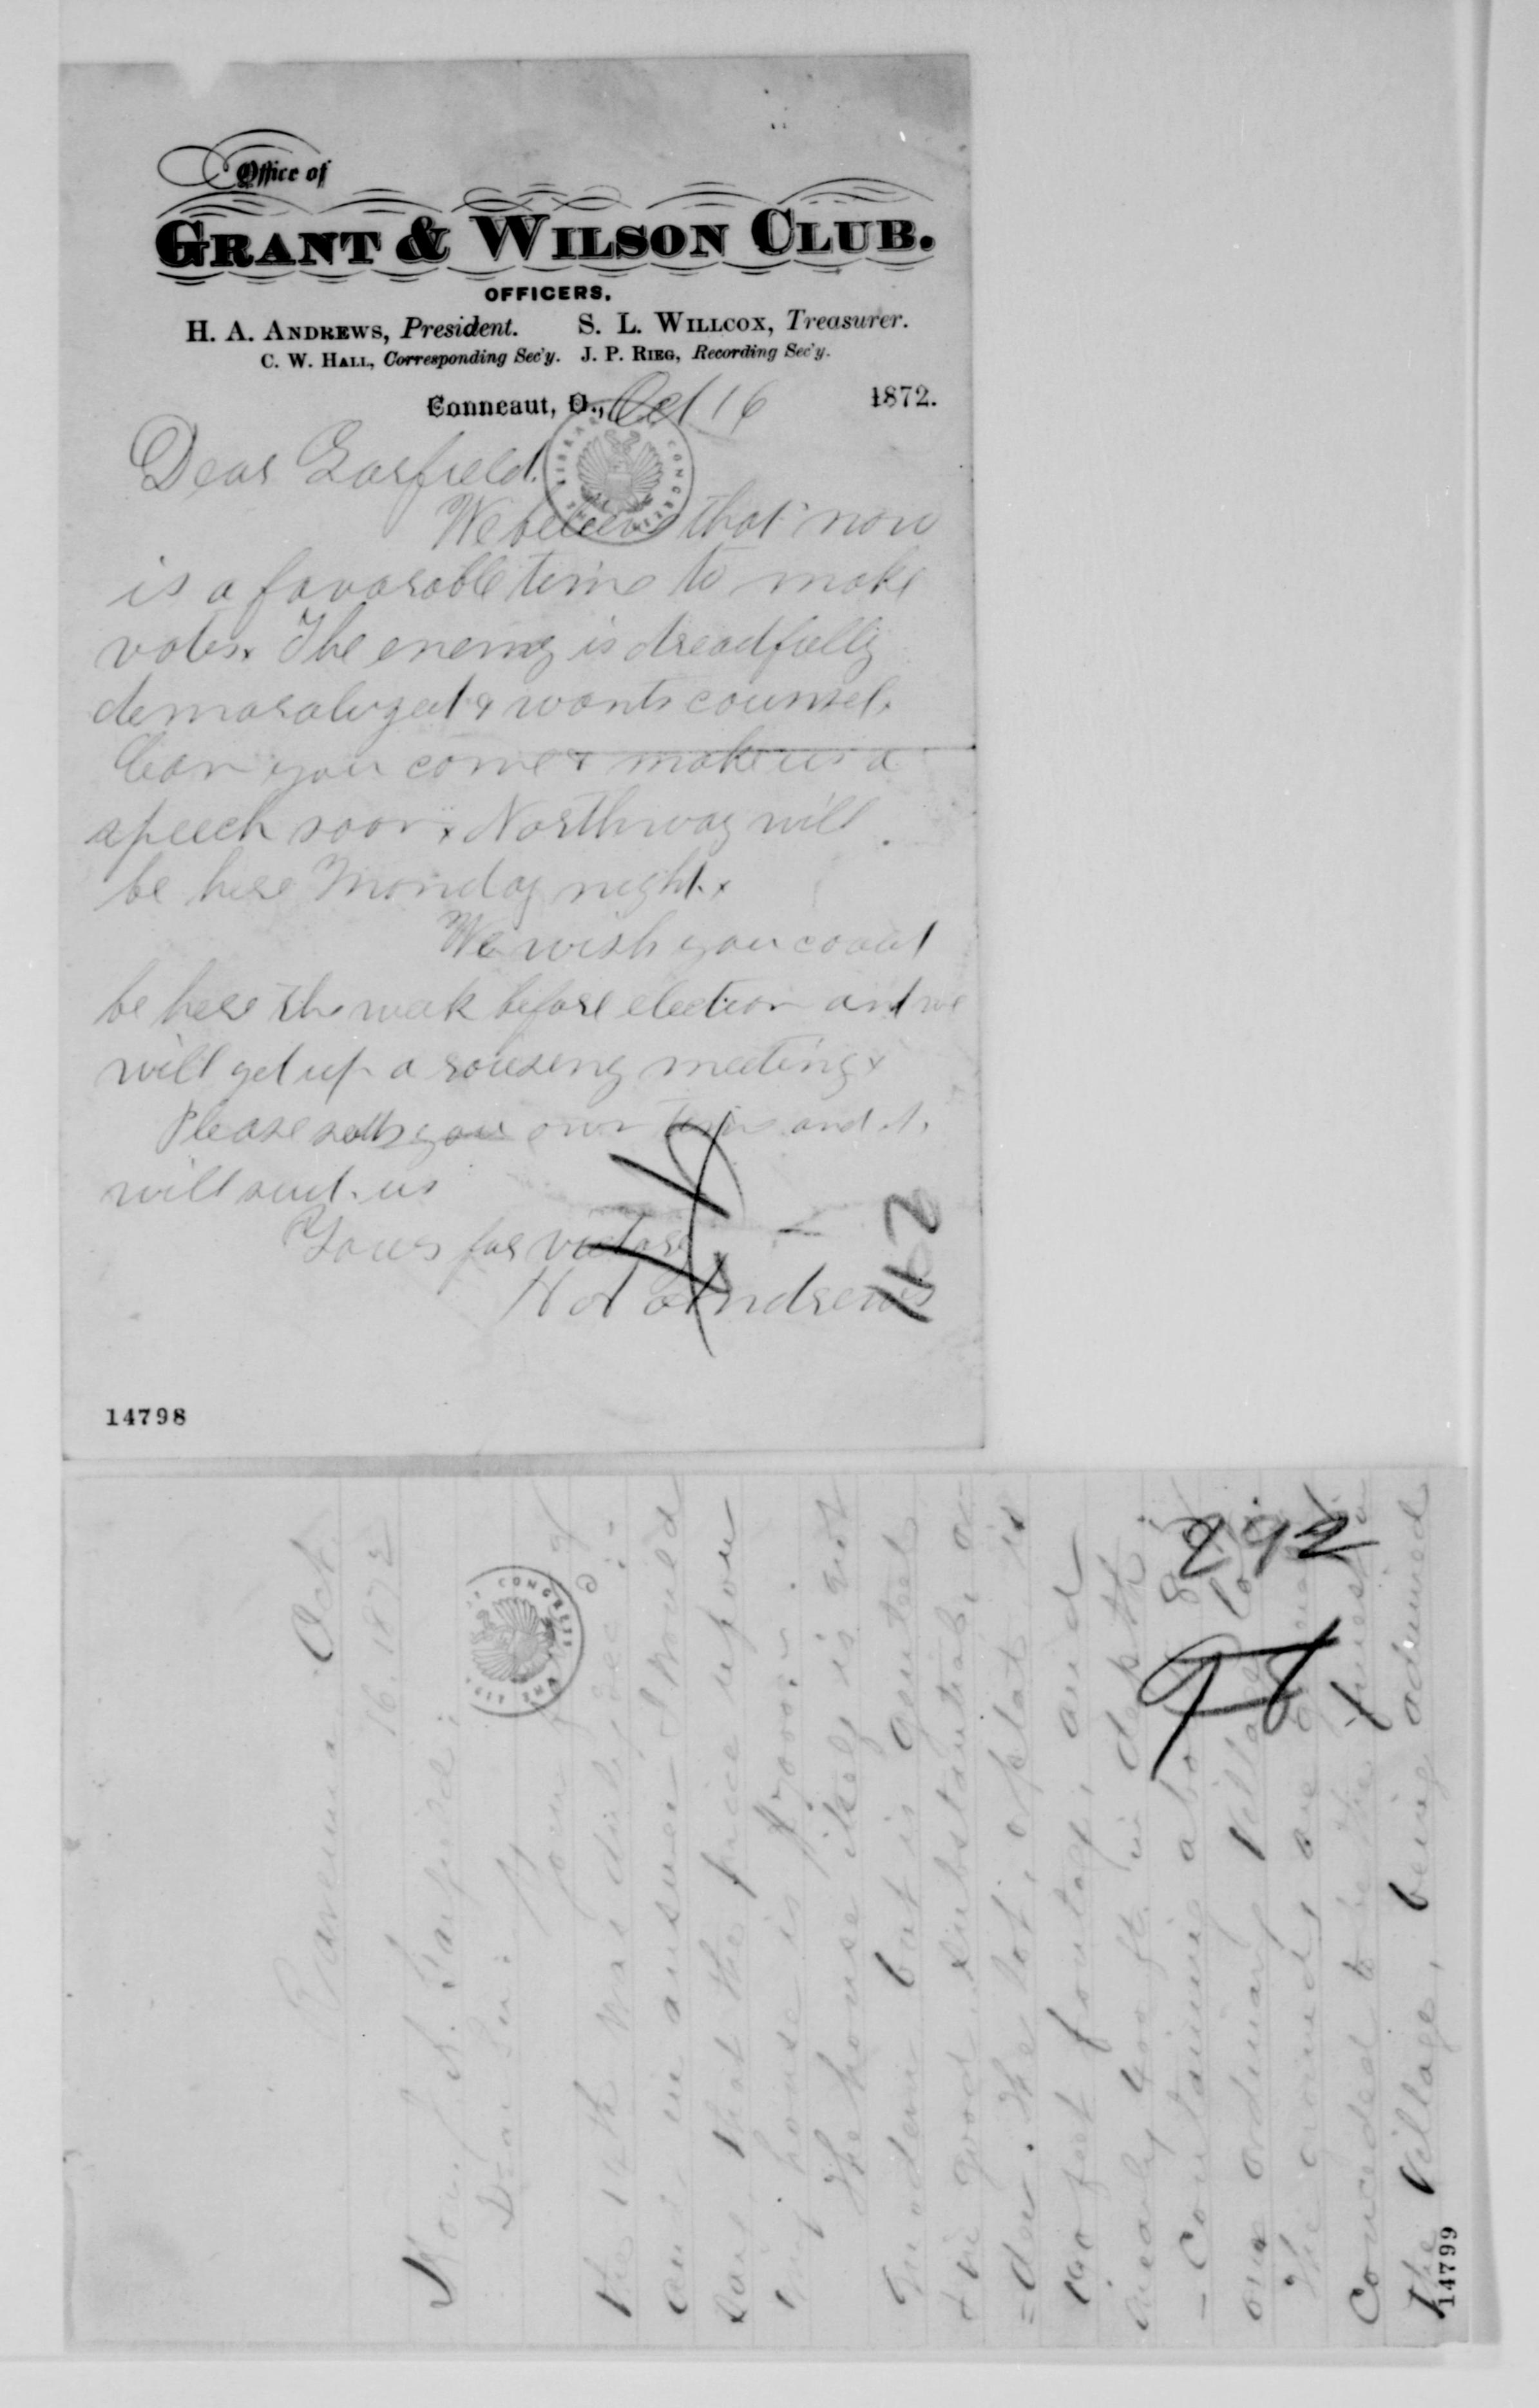 Office of
GRANT & WILSON CLUB.
OFFICERS.
H. A. ANDREWS, President. S. L. WILLCOX, Treasurer.
C. W. HALL, Corresponding Sec'y. J. P. RIEG, Recording Sec'y.
Conneaut, O., Oct 16 1872.
Dear Garfield.
We believe that now
is a favorable time to make
votes. The enemy is dreadfully
demoralized & wants counsel.
Can you come & make us a
speech soon. Northway will
be here Monday night.
We wish you could
be here the week before election and we
will get up a rousing meeting.
Please your own time and it
will suit us
Yours for victory
H A Andrews
1162
14798
Ravenna, Oct.
16, 1872
Hon. J. A. Garfield;
Dear Sir:
Your of
the 14th was duly rec'd:
and in answer I would
say that the price upon
my house is $7000.
The house itself is not
modern but is quite
good substantial
The lot, or plat, is
feet frontage, and
nearly 400 ft. in depth,
containing
ordinary Village
The grounds are
conceded to be the finest in
the Village, being admired
292
14799